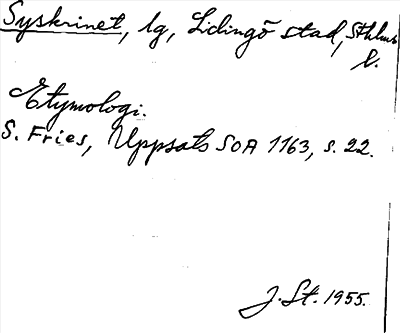 Syskrinet, lg, Lidingö stad, Sthlms
l.
Etymologi.
S. Fries, Uppsats SOA 1163, s. 22.
J. St. 1955.